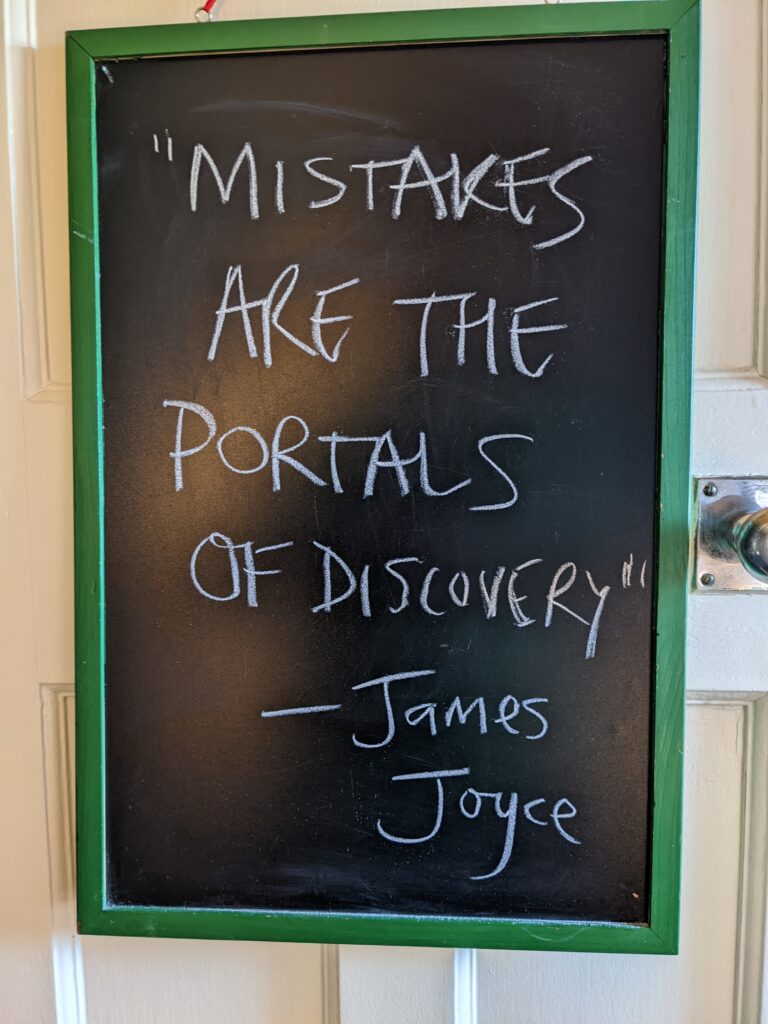 "MISTAKES
ARE THE
PORTALS
OF DISCOVERY"
— James
Joyce